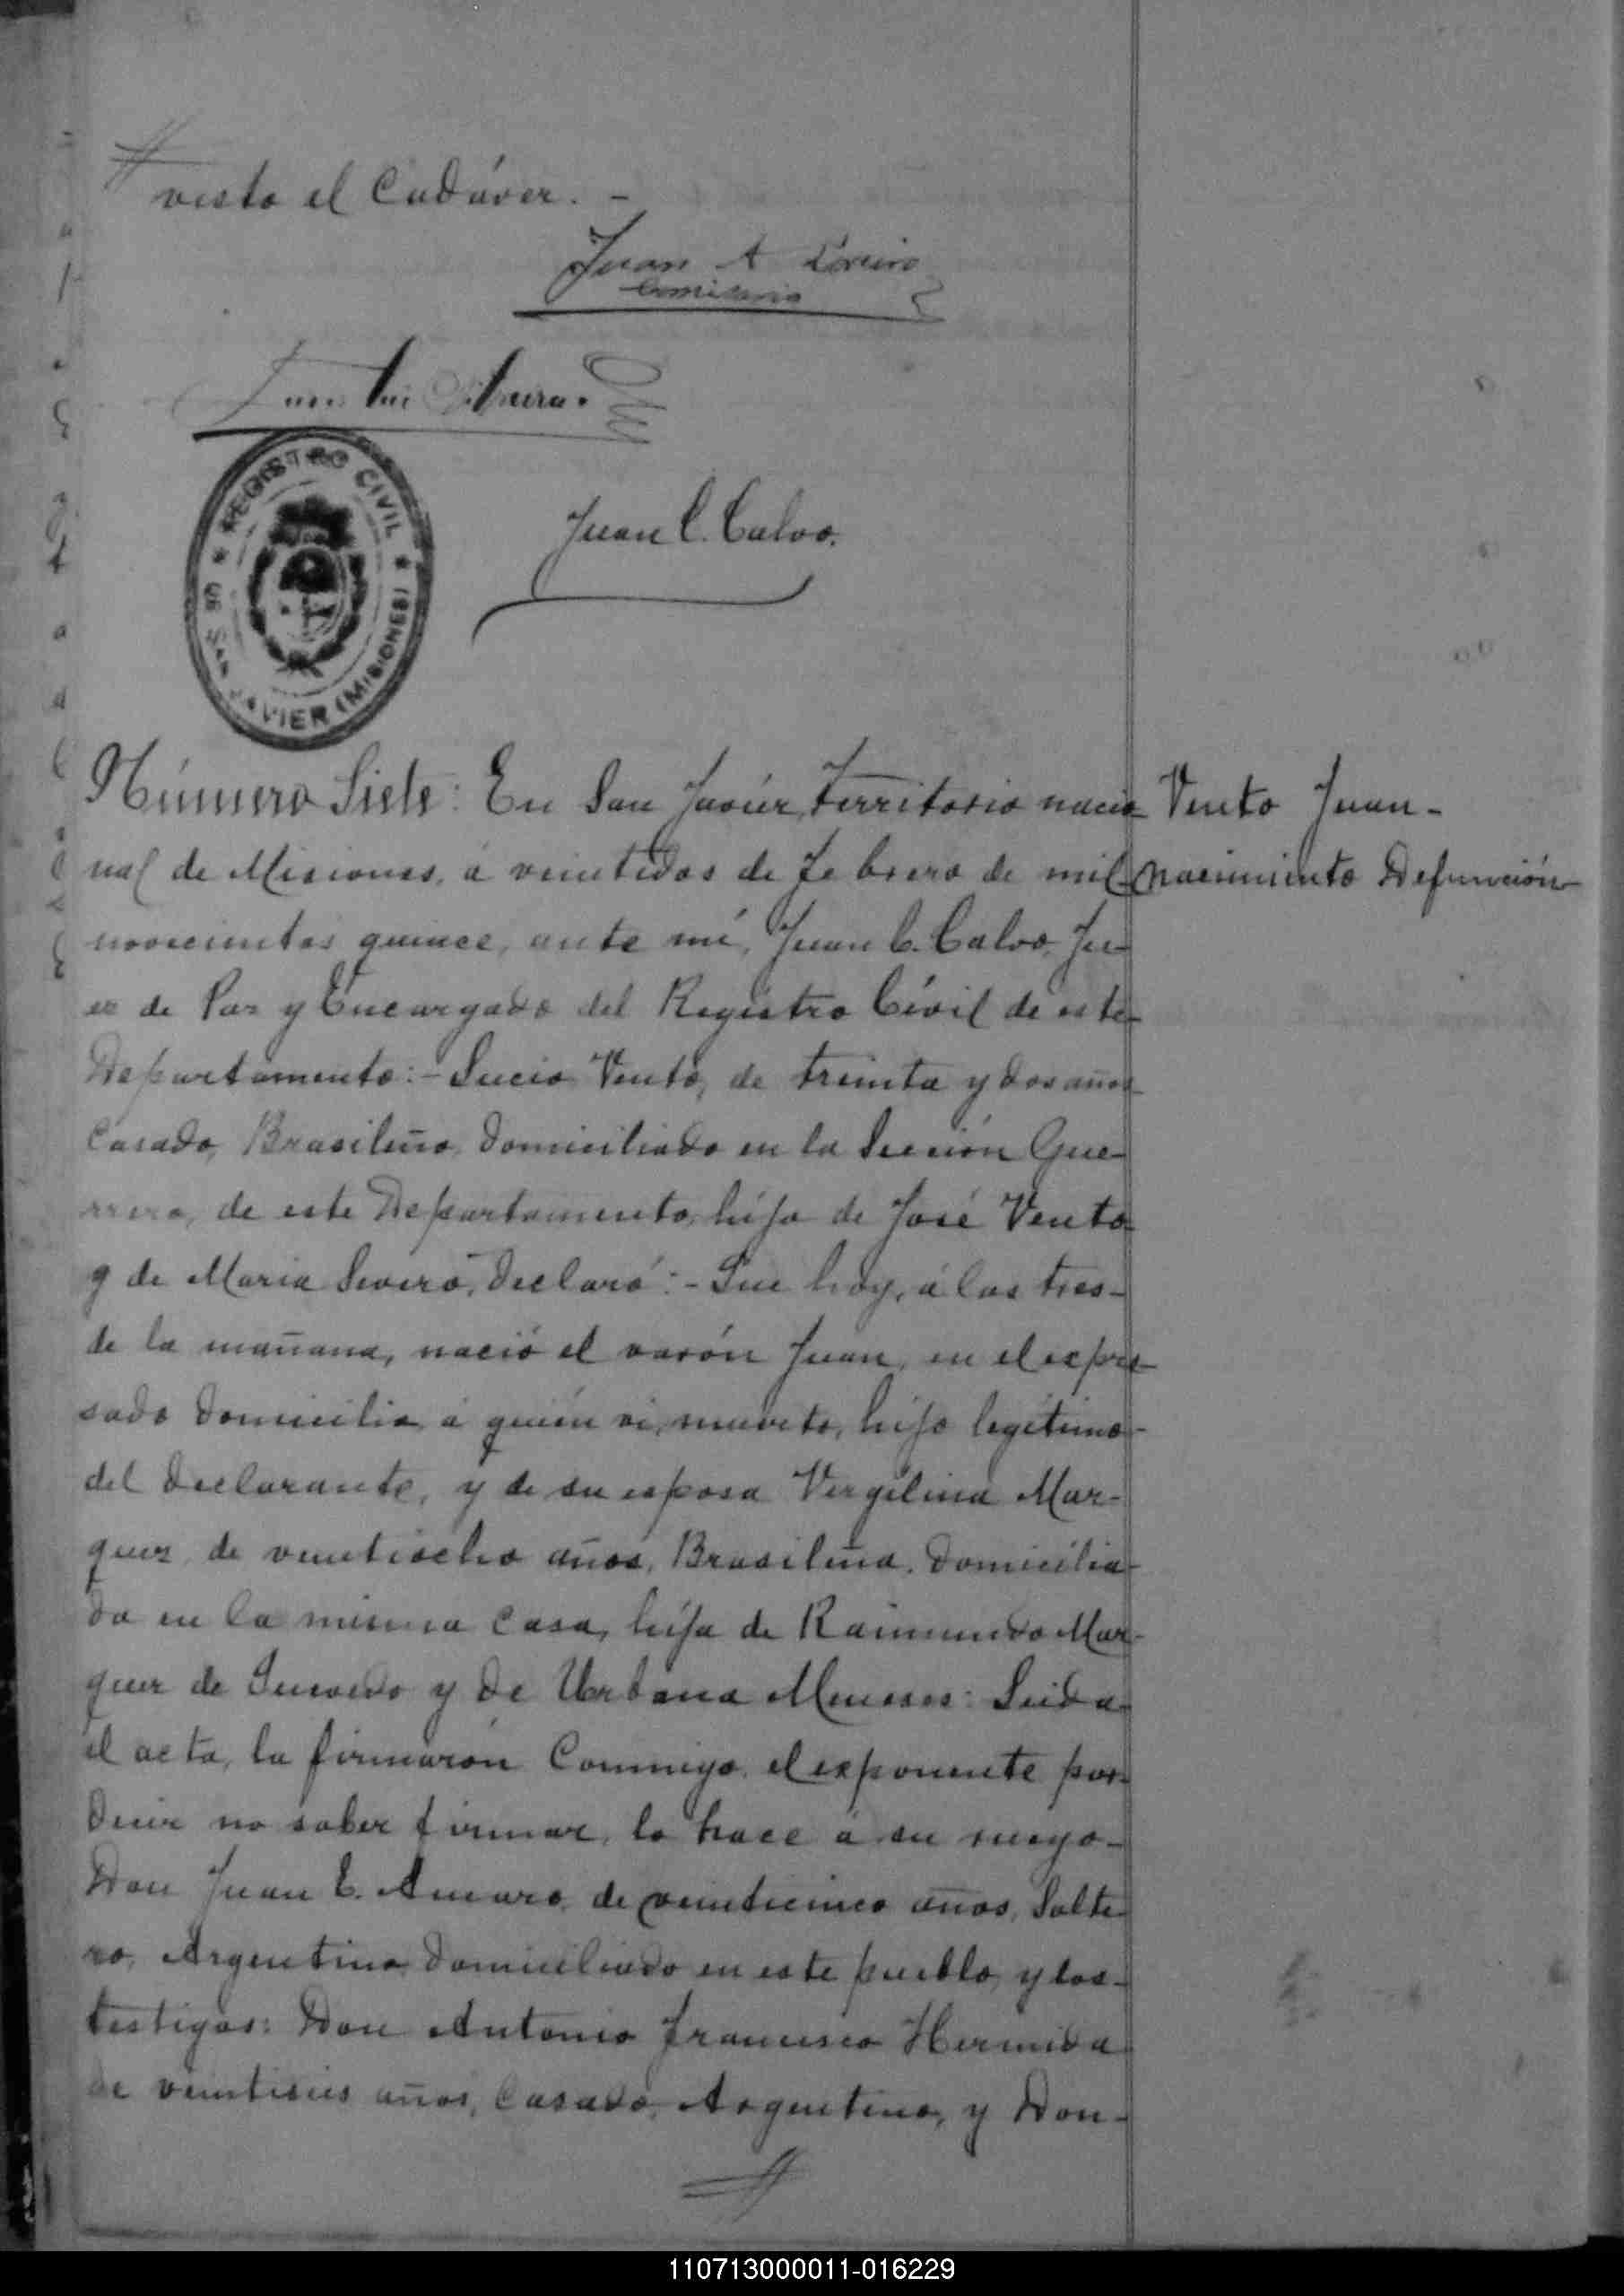 visto el Cadáver. -
Juan A
Comisario
REGISTRO CIVIL
DE SAN JAVIER (MISIONES)
Juan C. Calvo.
Número Siete: En San Javier, Territorio nacio
Vento Juan -
nal de Misiones, á veintidos de Febrero de mil
nacimiento Defunción
novecientos quince, ante mí, Juan C. Calvo, Ju-
ez de Paz y Encargado del Registro Civil de este
Departamento: - Lucio Vento, de treinta y dos años
Casado, Brasileño, domiciliado en la Sección Gue-
rrero, de este Departamento, hijo de José Vento
y de Maria Severo, declaró: - Que hoy, á las tres-
de la mañana, nació el varón Juan, en el expre
sado domicilio, á quién ví, muerto, hijo legitimo-
del declarante, y de su esposa Vergilina Mar-
quez, de veintiocho años, Brasileña, domicilia-
da en la misma Casa, hija de Raimundo Mar-
quez de y de Urbana Meneses: Leida
el acta, la firmarón Conmigo, el exponente por
decir no saber firmar, lo hace á su ruego-
Don Juan E. Amaro, de veinticinco años, Solte
ro, Argentino, domiciliado en este pueblo, y los-
testigos: Don Antonio Francisco Hermida
de veintiseis años, Casado, Argentino, y Don-
110713000011-016229